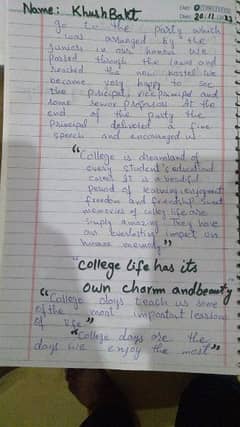 Name: KhushBakt
Date: 20.11.23
go to the party which
was arranged by the
juniors in our honour. We
passed through the lawns and
reached the new hostel. We
became very happy to see
the principal, vice principal and
some senior professors. At the
end of the party the
principal delivered a fine
speech and encouraged us.
"College is dreamland of
every student's educational
career. It is a beautiful
period of learning, enjoyment
freedom and friendship. Sweet
memories of college life are
simply amazing. They have
an everlasting impact on
human memory"
"College life has its
own charm and beauty
"College days teach us some
of the most important lessons
of life"
"College days are the
days we enjoy the most"